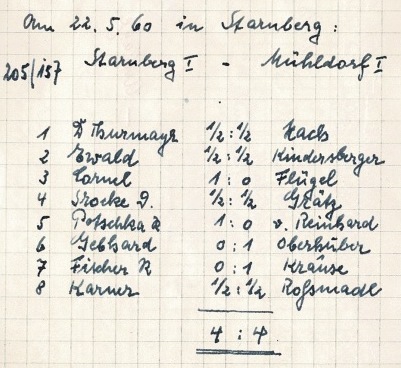 Am 22.5.60 in Starnberg:
205/157 Starnberg I - Mühldorf I
1 Dr Thurmayr ½:½ Hachs
2 Ewald ½:½ Kindersberger
3 Cornel 1:0 Flügel
4 Srocke D. ½:½ Grätz
5 Potschka R 1:0 v. Reinhard
6 Gebhard 0:1 Oberhuber
7 Fischer R 0:1 Krause
8 Karner ½:½ Roßmadl
4:4